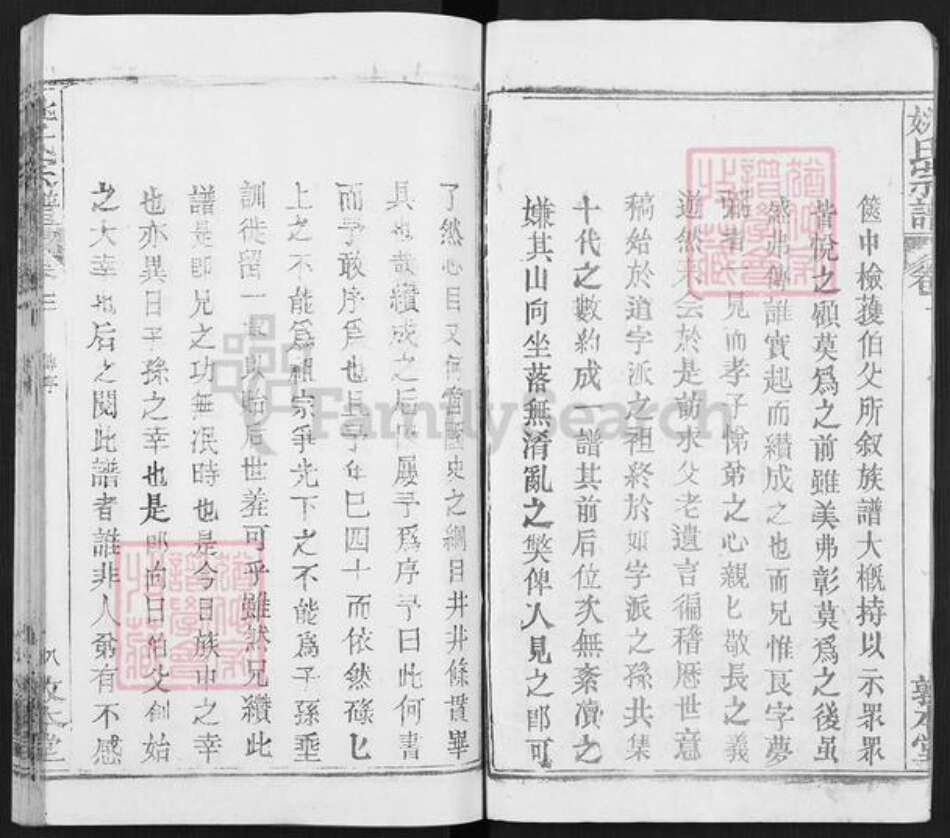 姚氏宗譜
卷
敦本堂
篋中檢獲伯父所叙族譜大槪持以示眾眾
皆悅之顧莫爲之前雖美弗彰莫爲之後虽
然弗傳誰實起而纘成之也而兄惟良字夢
弼者一見而孝子悌弟之心親匕敬長之義
遒然来会於是訪求父老遺言徧稽厯世意
稿始於道字派之祖終於如字派之孫共集
十代之數約成一譜其前后位次無紊瀆之
嫌其山向坐落無淆亂之獘俾人見之即可
了然心目又何啻國史之綱目井井條貫畢
具也哉纘成之后以屬予爲序予曰此何書
而予敢序爲也且予年巳四十而依然碌匕
上之不能爲祖宗爭光下之不能爲子孫垂
訓徒留一以貽后世羞可乎雖然兄纘此
譜是即兄之功無泯時也是今日族中之幸
也亦異日子孫之幸也是即向日伯父創始
之大幸也后之閱此譜者誰非人豿有不感
敦本堂
FamilySearch